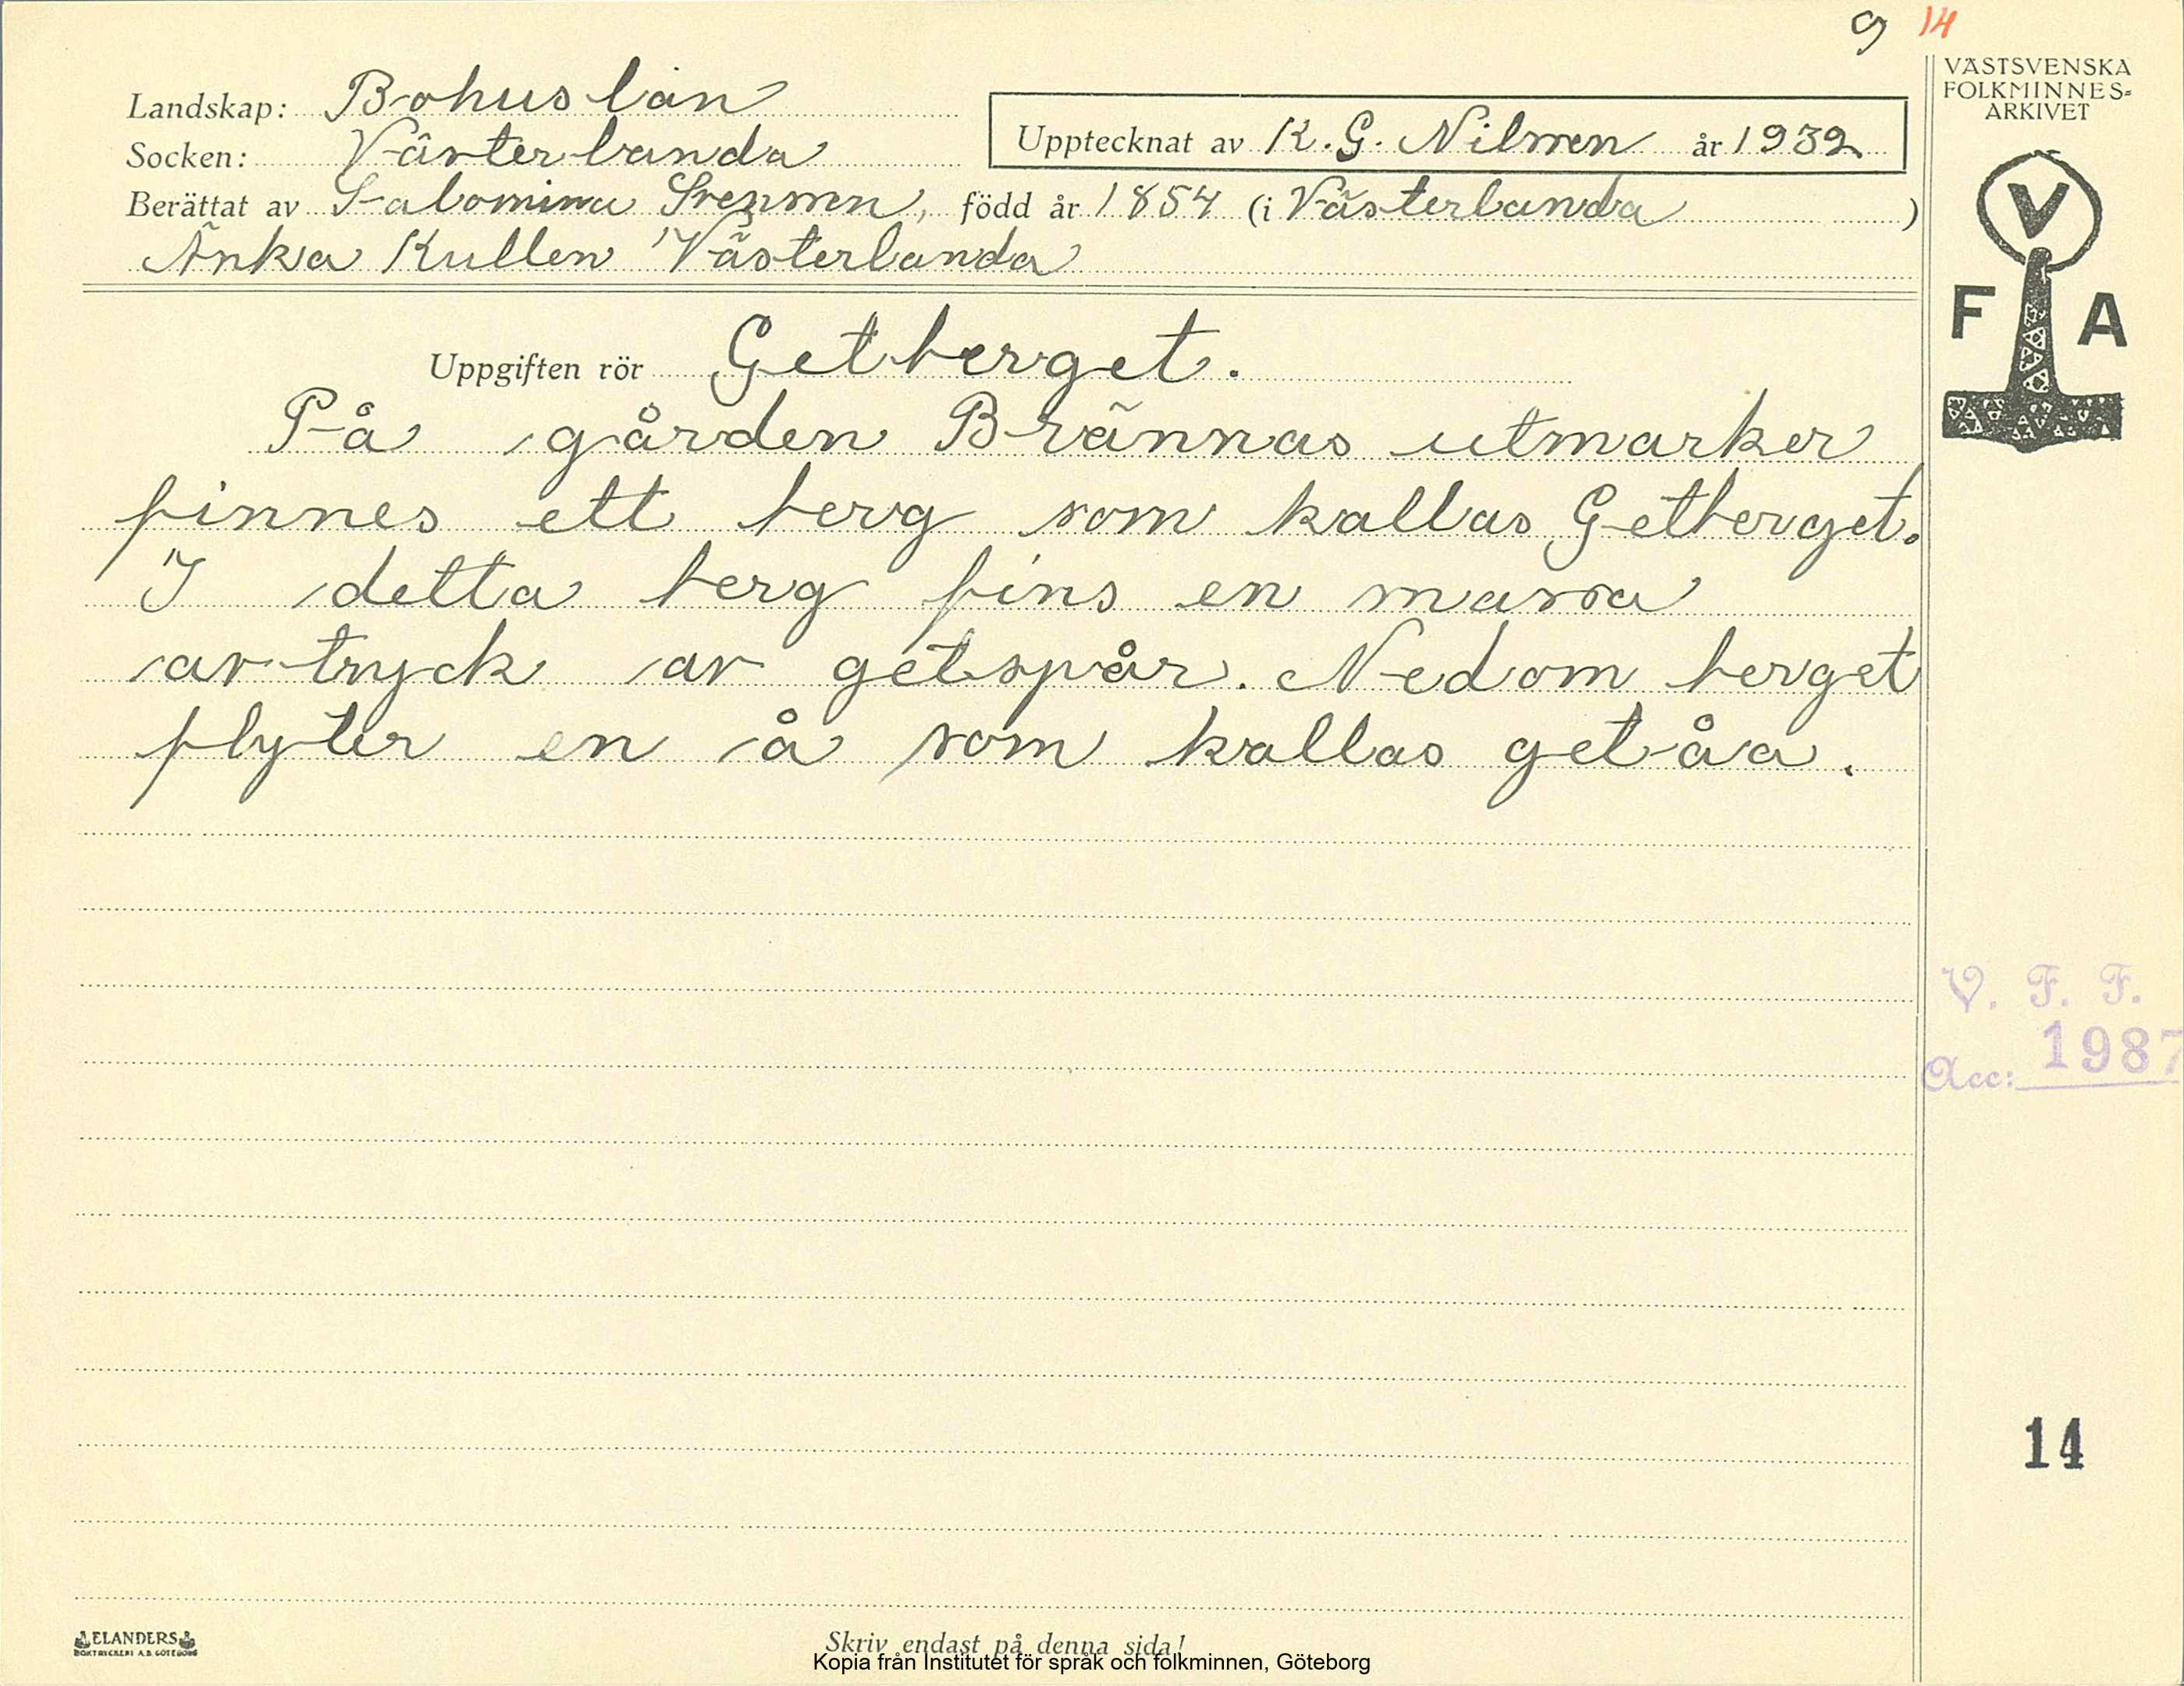 9 14
VÄSTSVENSKA
FOLKMINNES=
ARKIVET
Landskap: Bohuslän
Socken: Västerlanda
Upptecknat av K. G. Nilsson år 1932
Berättat av Salomina Svensson, född år 1854 (i Västerlanda )
Änka Kullen Västerlanda
V
F A
Uppgiften rör Getberget.
På gården Brännas utmarker
finnes ett berg som kallas Getberget.
I detta berg fins en massa
avtryck av getspår. Nedom berget
flyter en å som kallas getåa.
V. F. F.
Acc: 1987
14
ELANDERS
BOKTRYCKERI A.B. GÖTEBORG
Skriv endast på denna sida!
Kopia från Institutet för språk och folkminnen, Göteborg